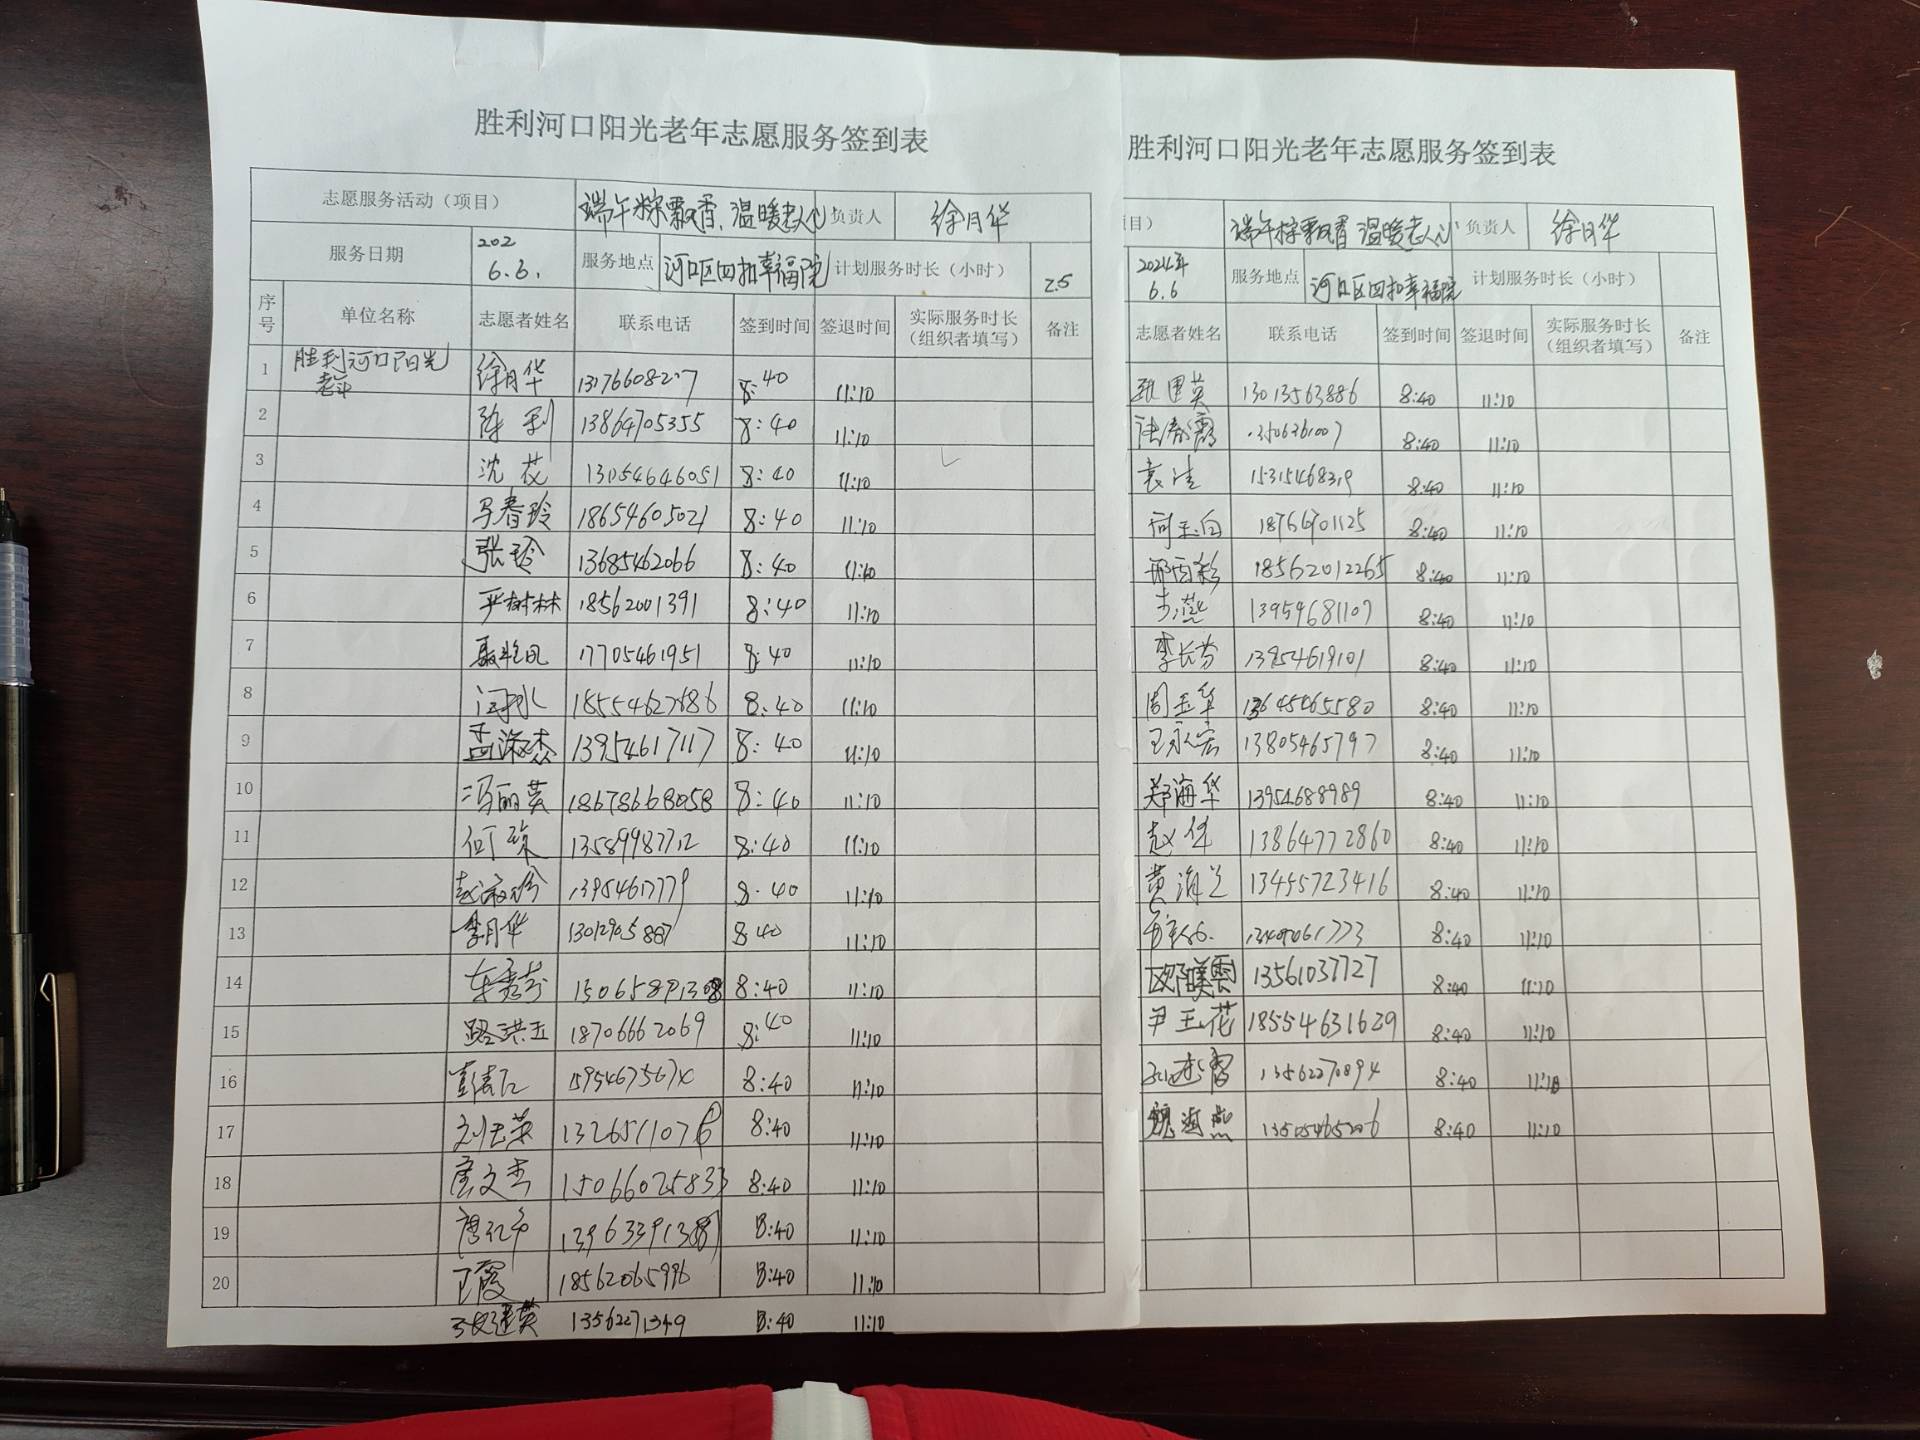 胜利河口阳光老年志愿服务签到表
志愿服务活动（项目） 端午粽飘香、温暖老人心 负责人 徐月华
服务日期 202 6.6. 服务地点 河口区四扣幸福院 计划服务时长（小时） 2.5
序号 单位名称 志愿者姓名 联系电话 签到时间 签退时间 实际服务时长（组织者填写） 备注
1 胜利河口阳光老年 徐月华 8:40 11:10
2 陈利 13864705355 8:40 11:10
3 沈花 13054646051 8:40 11:10
4 马春玲 18654605021 8:40 11:10
5 张玲 13685462066 8:40 11:10
6 严树林 18562001391 8:40 11:10
7 17705461951 8:40 11:10
8 18554627686 8:40 11:10
9 孟淑杰 13954617117 8:40 11:10
10 冯丽英 18678668058 8:40 11:10
11 何琼 13589987712 8:40 11:10
12 赵淑玲 13954617779 8:40 11:10
13 李月华 13012905887 8:40 11:10
14 车秀芳 8:40 11:10
15 路洪玉 18706662069 8:40 11:10
16 8:40 11:10
17 刘玉英 1326511076 8:40 11:10
18 唐文杰 15066025833 8:40 11:10
19 8:40 11:10
20 卫霞 18562065996 8:40 11:10
张建英 13562271349 8:40 11:10
胜利河口阳光老年志愿服务签到表
项目） 端午粽飘香 温暖老人心 负责人 徐月华
2024年 6.6 服务地点 河口区四扣幸福院 计划服务时长（小时）
志愿者姓名 联系电话 签到时间 签退时间 实际服务时长（组织者填写） 备注
13013563886 8:40 11:10
8:40 11:10
袁洁 15315468319 8:40 11:10
何玉白 18766701125 8:40 11:10
邢丙彩 18562012265 8:40 11:10
13954681107 8:40 11:10
李长芳 13854619101 8:40 11:10
周玉华 13645465580 8:40 11:10
王永宏 13805465797 8:40 11:10
郑海华 13954688989 8:40 11:10
赵华 13864772860 8:40 11:10
黄海兰 13455723416 8:40 11:10
8:40 11:10
欧阳美云 13561037727 8:40 11:10
尹玉花 18554631629 8:40 11:10
13562270894 8:40 11:10
魏海燕 8:40 11:10